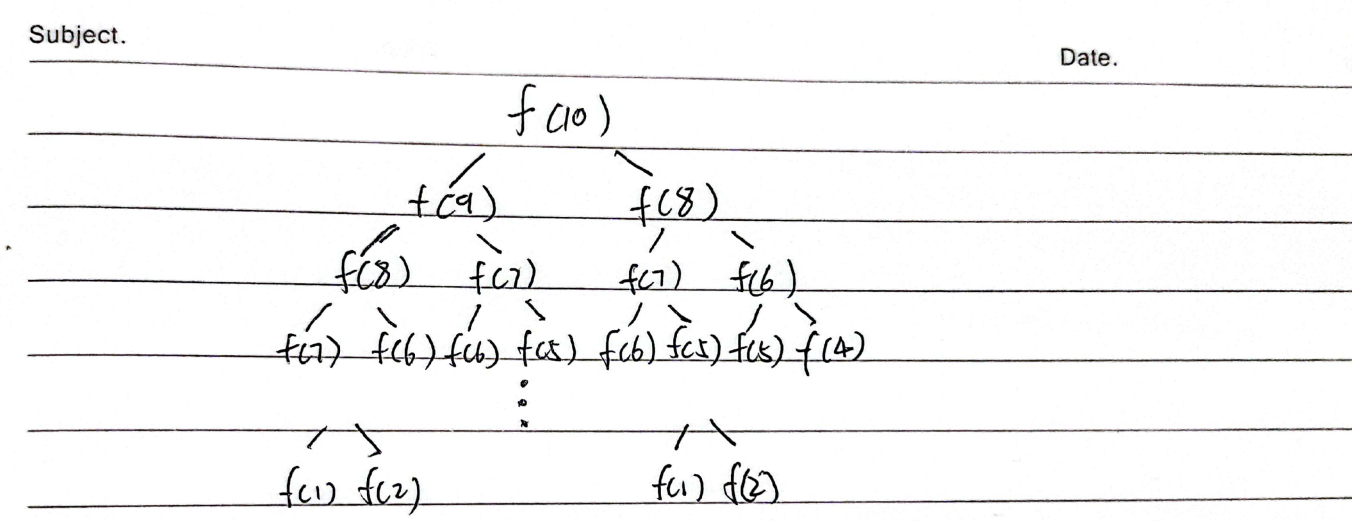 Subject.
Date.
f(10)
f(9) f(8)
f(8) f(7) f(7) f(6)
f(7) f(6) f(6) f(5) f(6) f(5) f(5) f(4)
f(1) f(2) f(1) f(2)